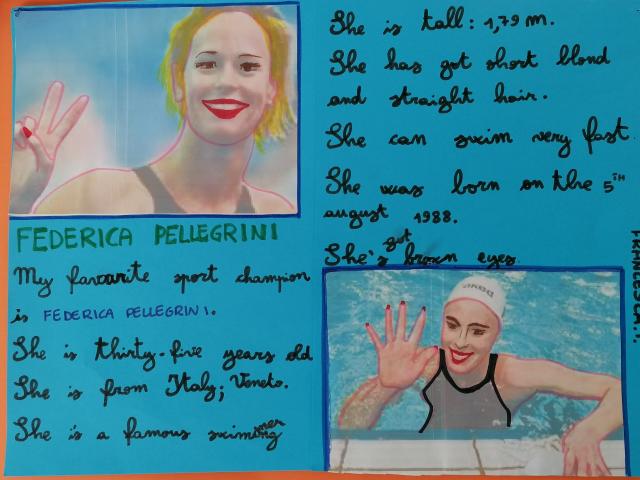 FEDERICA PELLEGRINI
My favourite sport champion
is FEDERICA PELLEGRINI.
She is thirty-five years old
She is from Italy; Veneto.
She is a famous swimming
mer
She is tall: 1,79 m.
She has got short blond
and straight hair.
She can swim very fast.
She was born on the 5TH
august 1988.
got
She's brown eyes
FRANCESCA.